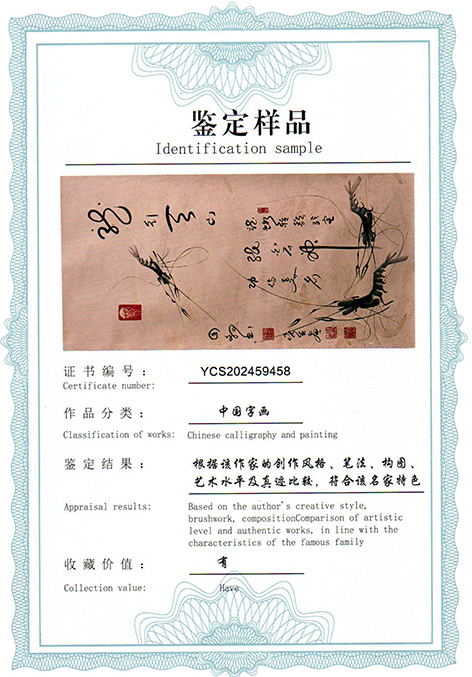 鉴定样品
Identification sample
证书编号：
YCS202459458
Certificate number:
作品分类：
中国字画
Classification of works:
Chinese calligraphy and painting
鉴定结果：
根据该作家的创作风格、笔法、构图、
艺术水平及真迹比较，符合该名家特色
Appraisal results:
Based on the author's creative style,
brushwork, compositionComparison of artistic
level and authentic works, in line with the
characteristics of the famous family
收藏价值：
有
Collection value:
Have